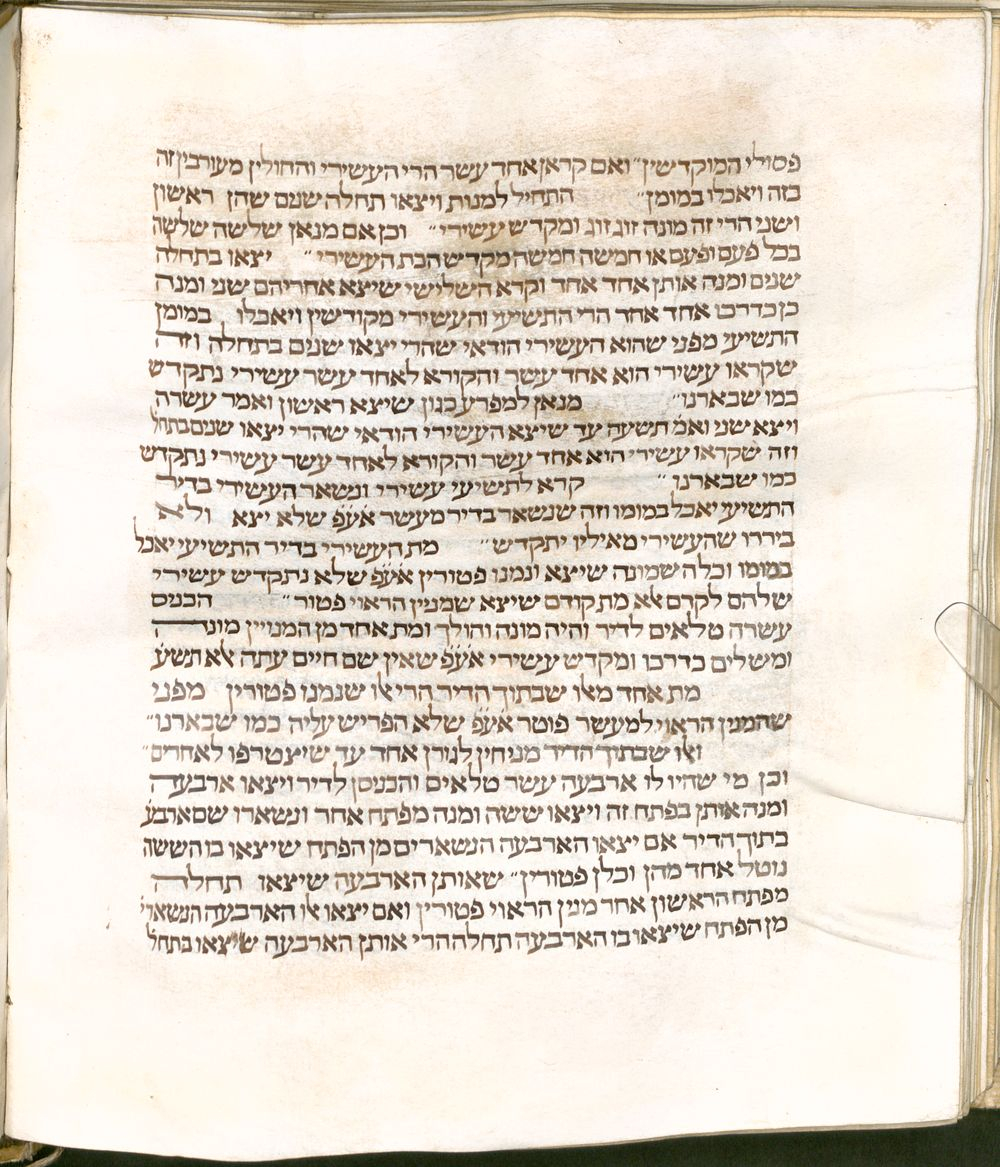 פסולי המוקדשין״ ואם קראן אחד עשר הרי העשירי והחולין מעורבין זה
בזה ויאכלו במומן״ התחיל למנות ויצאו תחלה שנים שהן ראשון
ושני הרי זה מונה זוג זוג ומקדש עשירי״ וכן אם מנאן שלשה שלשה
בכל פעם ופעם או חמשה חמשה מקדש הכת העשירי״ יצאו בתחלה
שנים ומנה אותן אחד אחד וקרא השלישי שיצא אחריהם שני ומנה
כן כדרכו אחד אחד הרי התשיעי והעשירי מקודשין ויאכלו במומן
התשיעי מפני שהוא העשירי הודאי שהרי יצאו שנים בתחלה וזה
שקראו עשירי הוא אחד עשר והקורא לאחד עשר עשירי נתקדש
כמו שבארנו״ מנאן למפרע כגון שיצא ראשון ואמר עשרה
ויצא שני ואמ׳ תשעה עד שיצא העשירי הודאי שהרי יצאו שנים בתחל׳
וזה שקראו עשירי הוא אחד עשר והקורא לאחד עשר עשירי נתקדש
כמו שבארנו״ קרא לתשיעי עשירי ונשאר העשירי בדיר
התשיעי יאכל במומו וזה שנשאר בדיר מעשר אע״פ שלא יצא ולא
ביררו שהעשירי מאיליו יתקדש״ מת העשירי בדיר התשיעי יאכל
במומו וכלה שמונה שיצא ונמנו פטורין אע״פ שלא נתקדש עשירי
שלהם לקרם לא מת קודם שיצא שמנין הראוי פטור״ הכניס
עשרה טלאים לדיר והיה מונה והולך ומת אחד מן המנויין מונה
ומשלים כדרכו ומקדש עשירי אע״פ שאין שם חיים עתה לא תשע׳
מת אחד מלו שבתוך הדיר הרי לו שנמנו פטורין מפני
שהמנין הראוי למעשר פוטר אע״פ שלא הפריש עליה כמו שבארנו״
ואו שבתוך הדיר מניחין לגורן אחד עד שיצטרפו לאחרים״
וכן מי שהיו לו ארבעה עשר טלאים והכניסן לדיר ויצאו ארבעה
ומנה אותן בפתח זה ויצאו ששה ומנה מפתח אחר ונשארו שם ארבע׳
בתוך הדיר אם יצאו הארבעה הנשארים מן הפתח שיצאו בו הששה
נוטל אחד מהן וכלן פטורין״ שאותן הארבעה שיצאו תחלה
מפתח הראשון אחד מנין הראוי פטורין ואם יצאו לו הארבעה הנשארי׳
מן הפתח שיצאו בו הארבעה תחלה הרי אותן הארבעה שיצאו בתחל׳